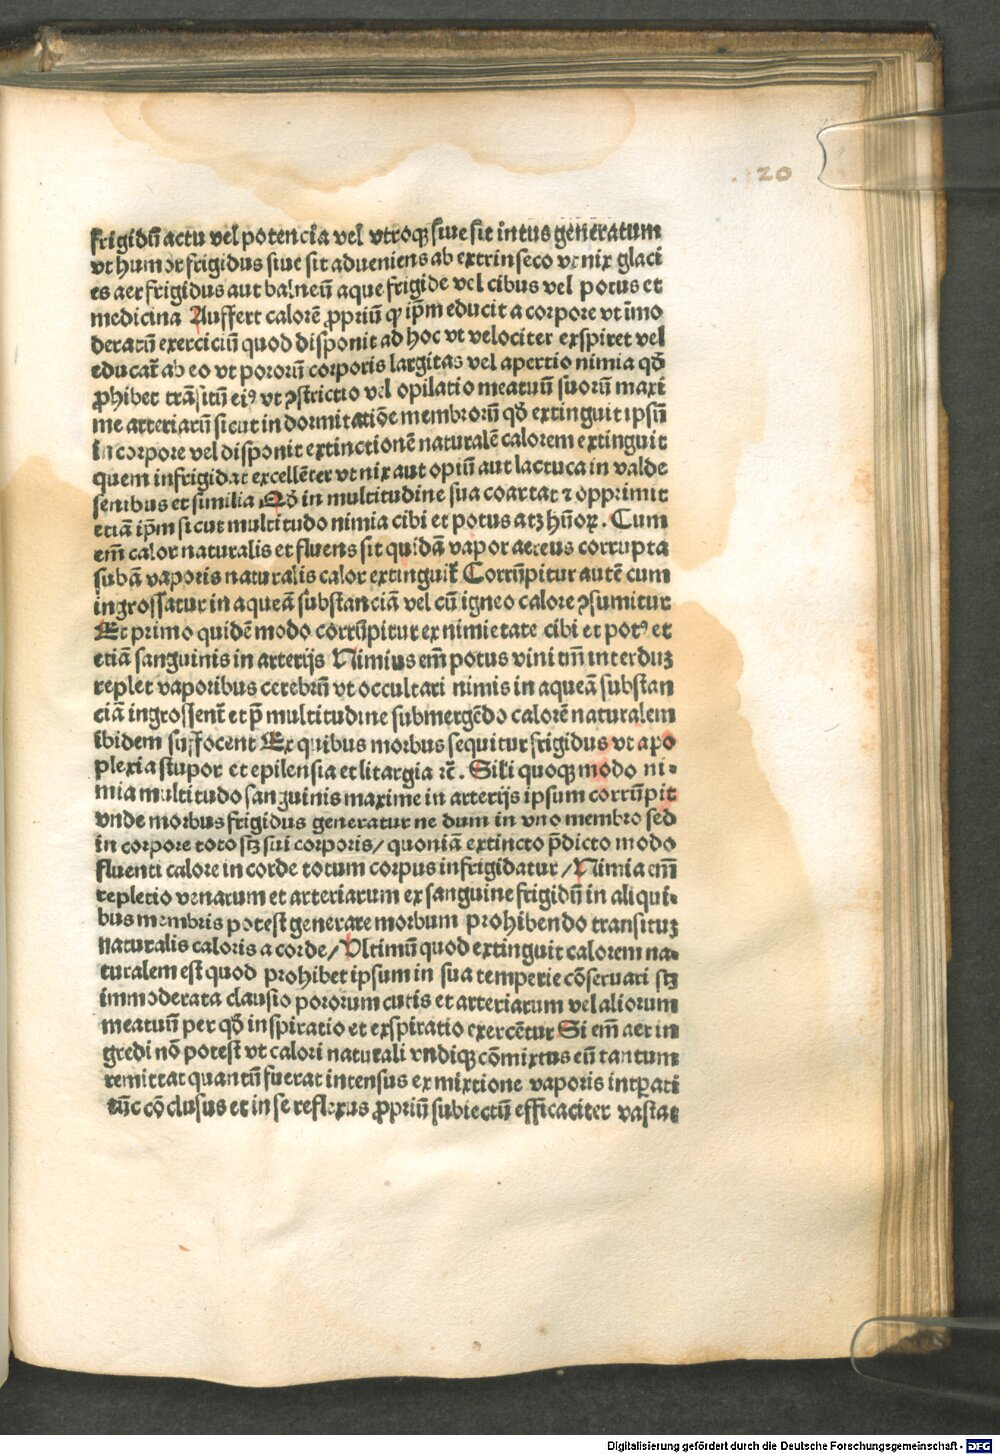 20
frigidū actu vel potencia vel vtroqꝫ siue sit intus generatum
vt humor frigidus siue sit adueniens ab extrinseco vt nix glaci
es aer frigidus aut balneū aque frigide vel cibus vel potus et
medicina Auffert calorē ꝓpriū qꝛ ip̄m educit a corpore vt īmo
deratū exerciciū quod disponit ad hoc vt velociter exspiret vel
educat̄ ab eo vt pororū corporis largitas vel apertio nimia qđ
ꝓhibet trāsitū eiꝰ vt ꝯstrictio vel opilatio meatuū suorū maxi
me arteriarū sicut in dormitatiōe membrorū qđ extinguit ipsū
in corpore vel disponit extinctionē naturalē calorem extinguit
quem infrigidat excellēter vt nix aut opiū aut lactuca in valde
senibus et similia Qđ in multitudine sua coartat ⁊ opprimit
etiā ip̄m sicut multitudo nimia cibi et potus atꝫ hūoꝝ. Cum
em̄ calor naturalis et fluens sit quidā vapor aereus corrupta
subā vaporis naturalis calor extinguit̄ Corrūpitur autē cum
ingrossatur in aqueā substanciā vel cū igneo calore ꝯsumitur
Et primo quidē modo corrūpitur ex nimietate cibi et potꝰ et
etiā sanguinis in arterijs Nimius em̄ potus vini tm̄ interduꝫ
replet vaporibus cerebrū vt occultari nimis in aqueā substan
ciā ingrossent̄ et p̄ multitudine submergēdo calorē naturalem
ibidem suffocent Ex quibus morbus sequitur frigidus vt apo
plexia stupor et epilensia et litargia ⁊c̄. Sil̄i quoqꝫ modo ni⸗
mia multitudo sanguinis maxime in arterijs ipsum corrūpit
vnde morbus frigidus generatur ne dum in vno membro sed
in corpore toto scꝫ sui corporis/ quoniā extincto p̄dicto modo
fluenti calore in corde totum corpus infrigidatur/ Nimia em̄
repletio venarum et arteriarum ex sanguine frigidū in aliqui⸗
bus membris potest generare morbum prohibendo transituꝫ
naturalis caloris a corde/ Vltimū quod extinguit calorem na⸗
turalem est quod prohibet ipsum in sua temperie cōseruari scꝫ
immoderata clausio pororum cutis et arteriarum vel aliorum
meatuū per qđ inspiratio et exspiratio exercētur Si em̄ aer in
gredi nō potest vt calori naturali vndiqꝫ cōmixtus eū tantum
remittat quantū fuerat intensus ex mixtione vaporis intꝑati
tūc cōclusus et in se reflexus ꝓpriū subiectū efficaciter vastat
Digitalisierung gefördert durch die Deutsche Forschungsgemeinschaft - DFG